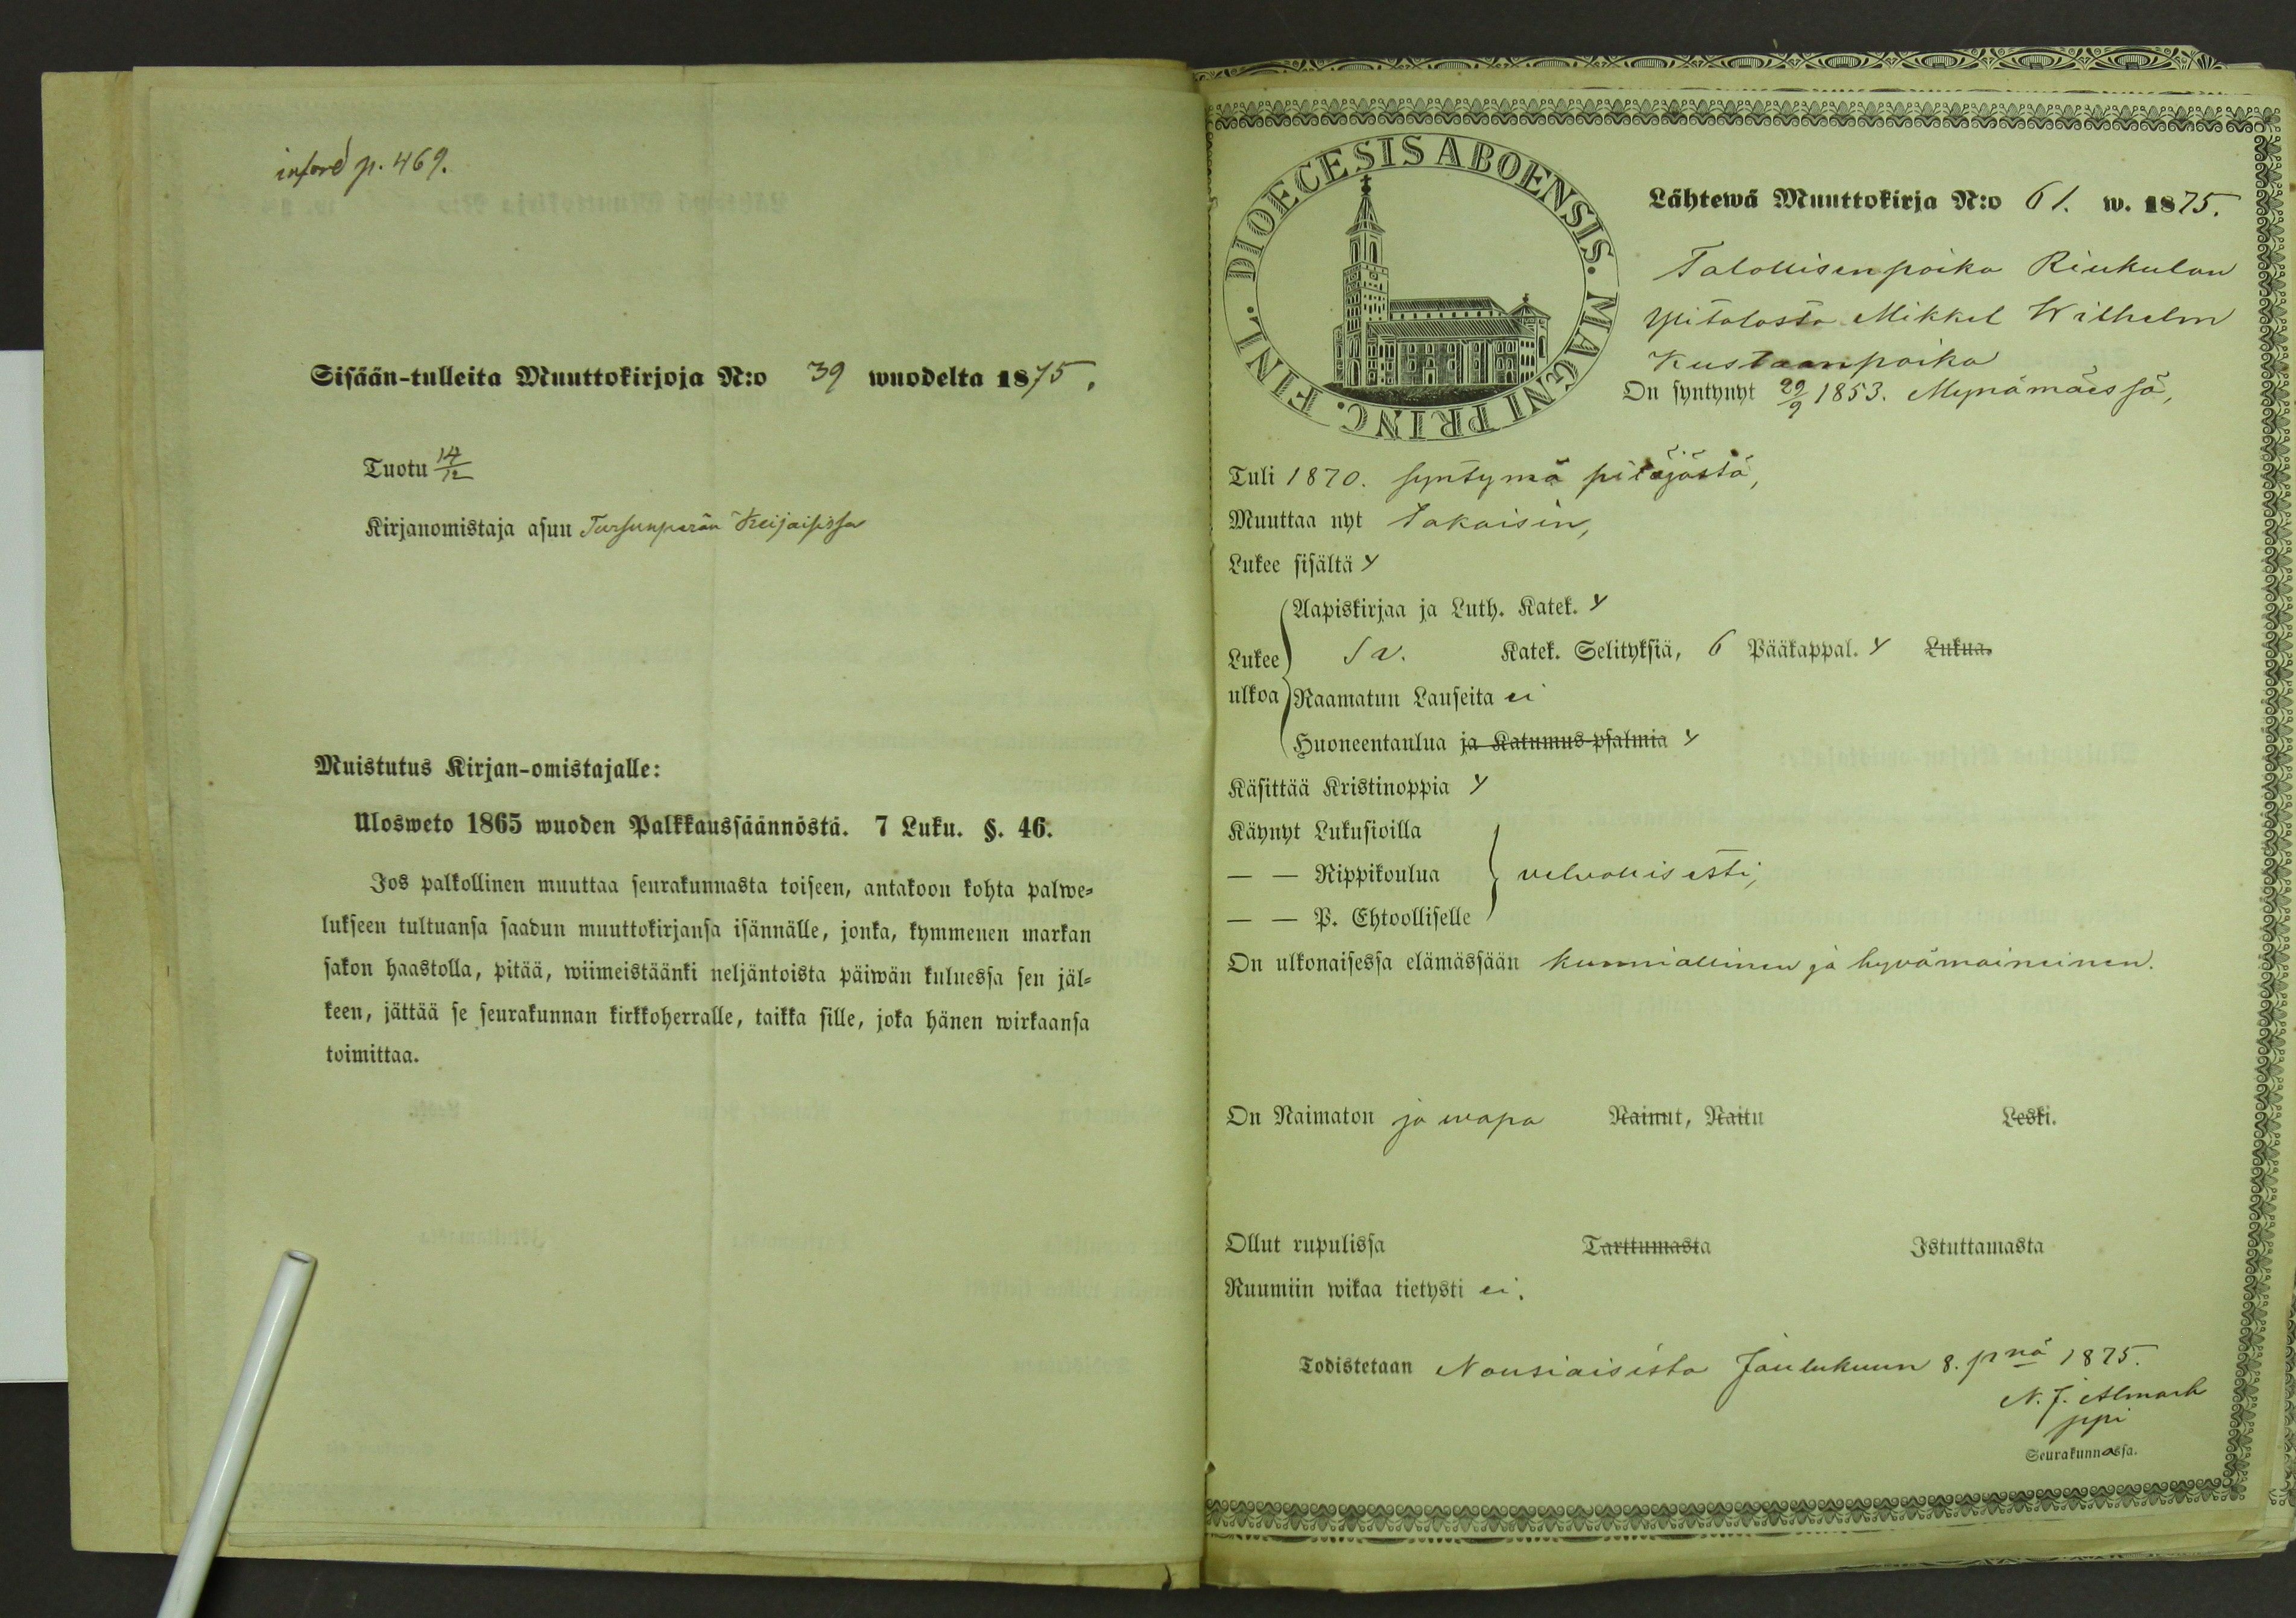 inford p. 469.
Sisään-tulleita Muuttokirjoja N:o 39 wuodelta 1875.
Tuotu 14/12
Kirjanomistaja asuu Tursunperän Keijaisissa
Muistutus Kirjan-omistajalle:
Ulosweto 1865 wuoden Palkkaussäännöstä. 7 Luku. §. 46.
Jos palkollinen muuttaa seurakunnasta toiseen, antakoon kohta palwe-
lukseen tultuansa saadun muuttokirjansa isännälle, jonka, kymmenen markan
sakon haastolla, pitää, wiimeistäänki neljäntoista päiwän kuluessa sen jäl-
keen, jättää se seurakunnan kirkkoherralle, taikka sille, joka hänen wirkaansa
toimittaa.
FINL. DIOECESIS ABOENSIS. MAGNI PRINC.
Lähtewä Muuttokirja N:o 61. w. 1875.
Talollisenpoika Riukulan
Ylitalosta Mikkel Wilhelm
Kustaanpoika
On syntynyt 29/9 1853. Mynämäessä,
Tuli 1870. syntymä pitäjästä,
Muuttaa nyt takaisin,
Lukee sisältä y
Aapiskirjaa ja Luth. Katek. y
Lukee Sv. Katek. Selityksiä, 6 Pääkappal. y Lukua.
ulkoa Raamatun Lauseita ei
Huoneentaulua ja Katumus-psalmia y
Käsittää Kristinoppia y
Käynyt Lukusioilla
— — Rippikoulua velvollisesti,
— — P. Ehtoolliselle
On ulkonaisessa elämässään kunniallinen ja hyvämaineinen.
On Naimaton ja wapa Nainut, Naitu Leski.
Ollut rupulissa Tarttumasta Istuttamasta
Ruumiin wikaa tietysti ei.
Todistetaan Nousiaisista Joulukuun 8. pnä 1875.
N. J. Almark
ppi
Seurakunnassa.